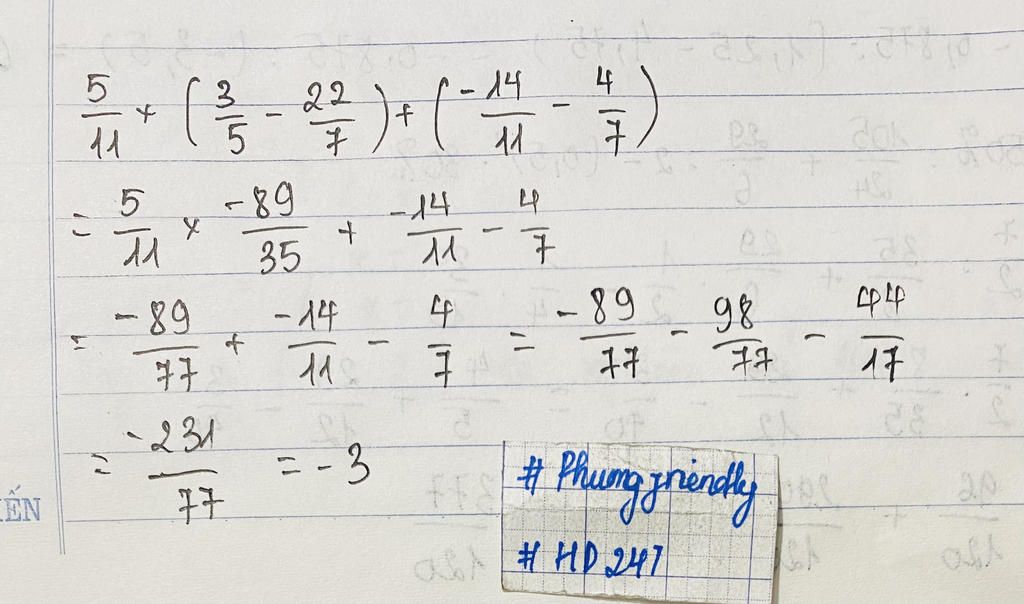 5/11 × (3/5 - 22/7) + (-14/11 - 4/7)
= 5/11 × -89/35 + -14/11 - 4/7
= -89/77 + -14/11 - 4/7 = -89/77 - 98/77 - 44/17
= -231/77 = -3
# Phuongfriendly
# HD 247
ẾN